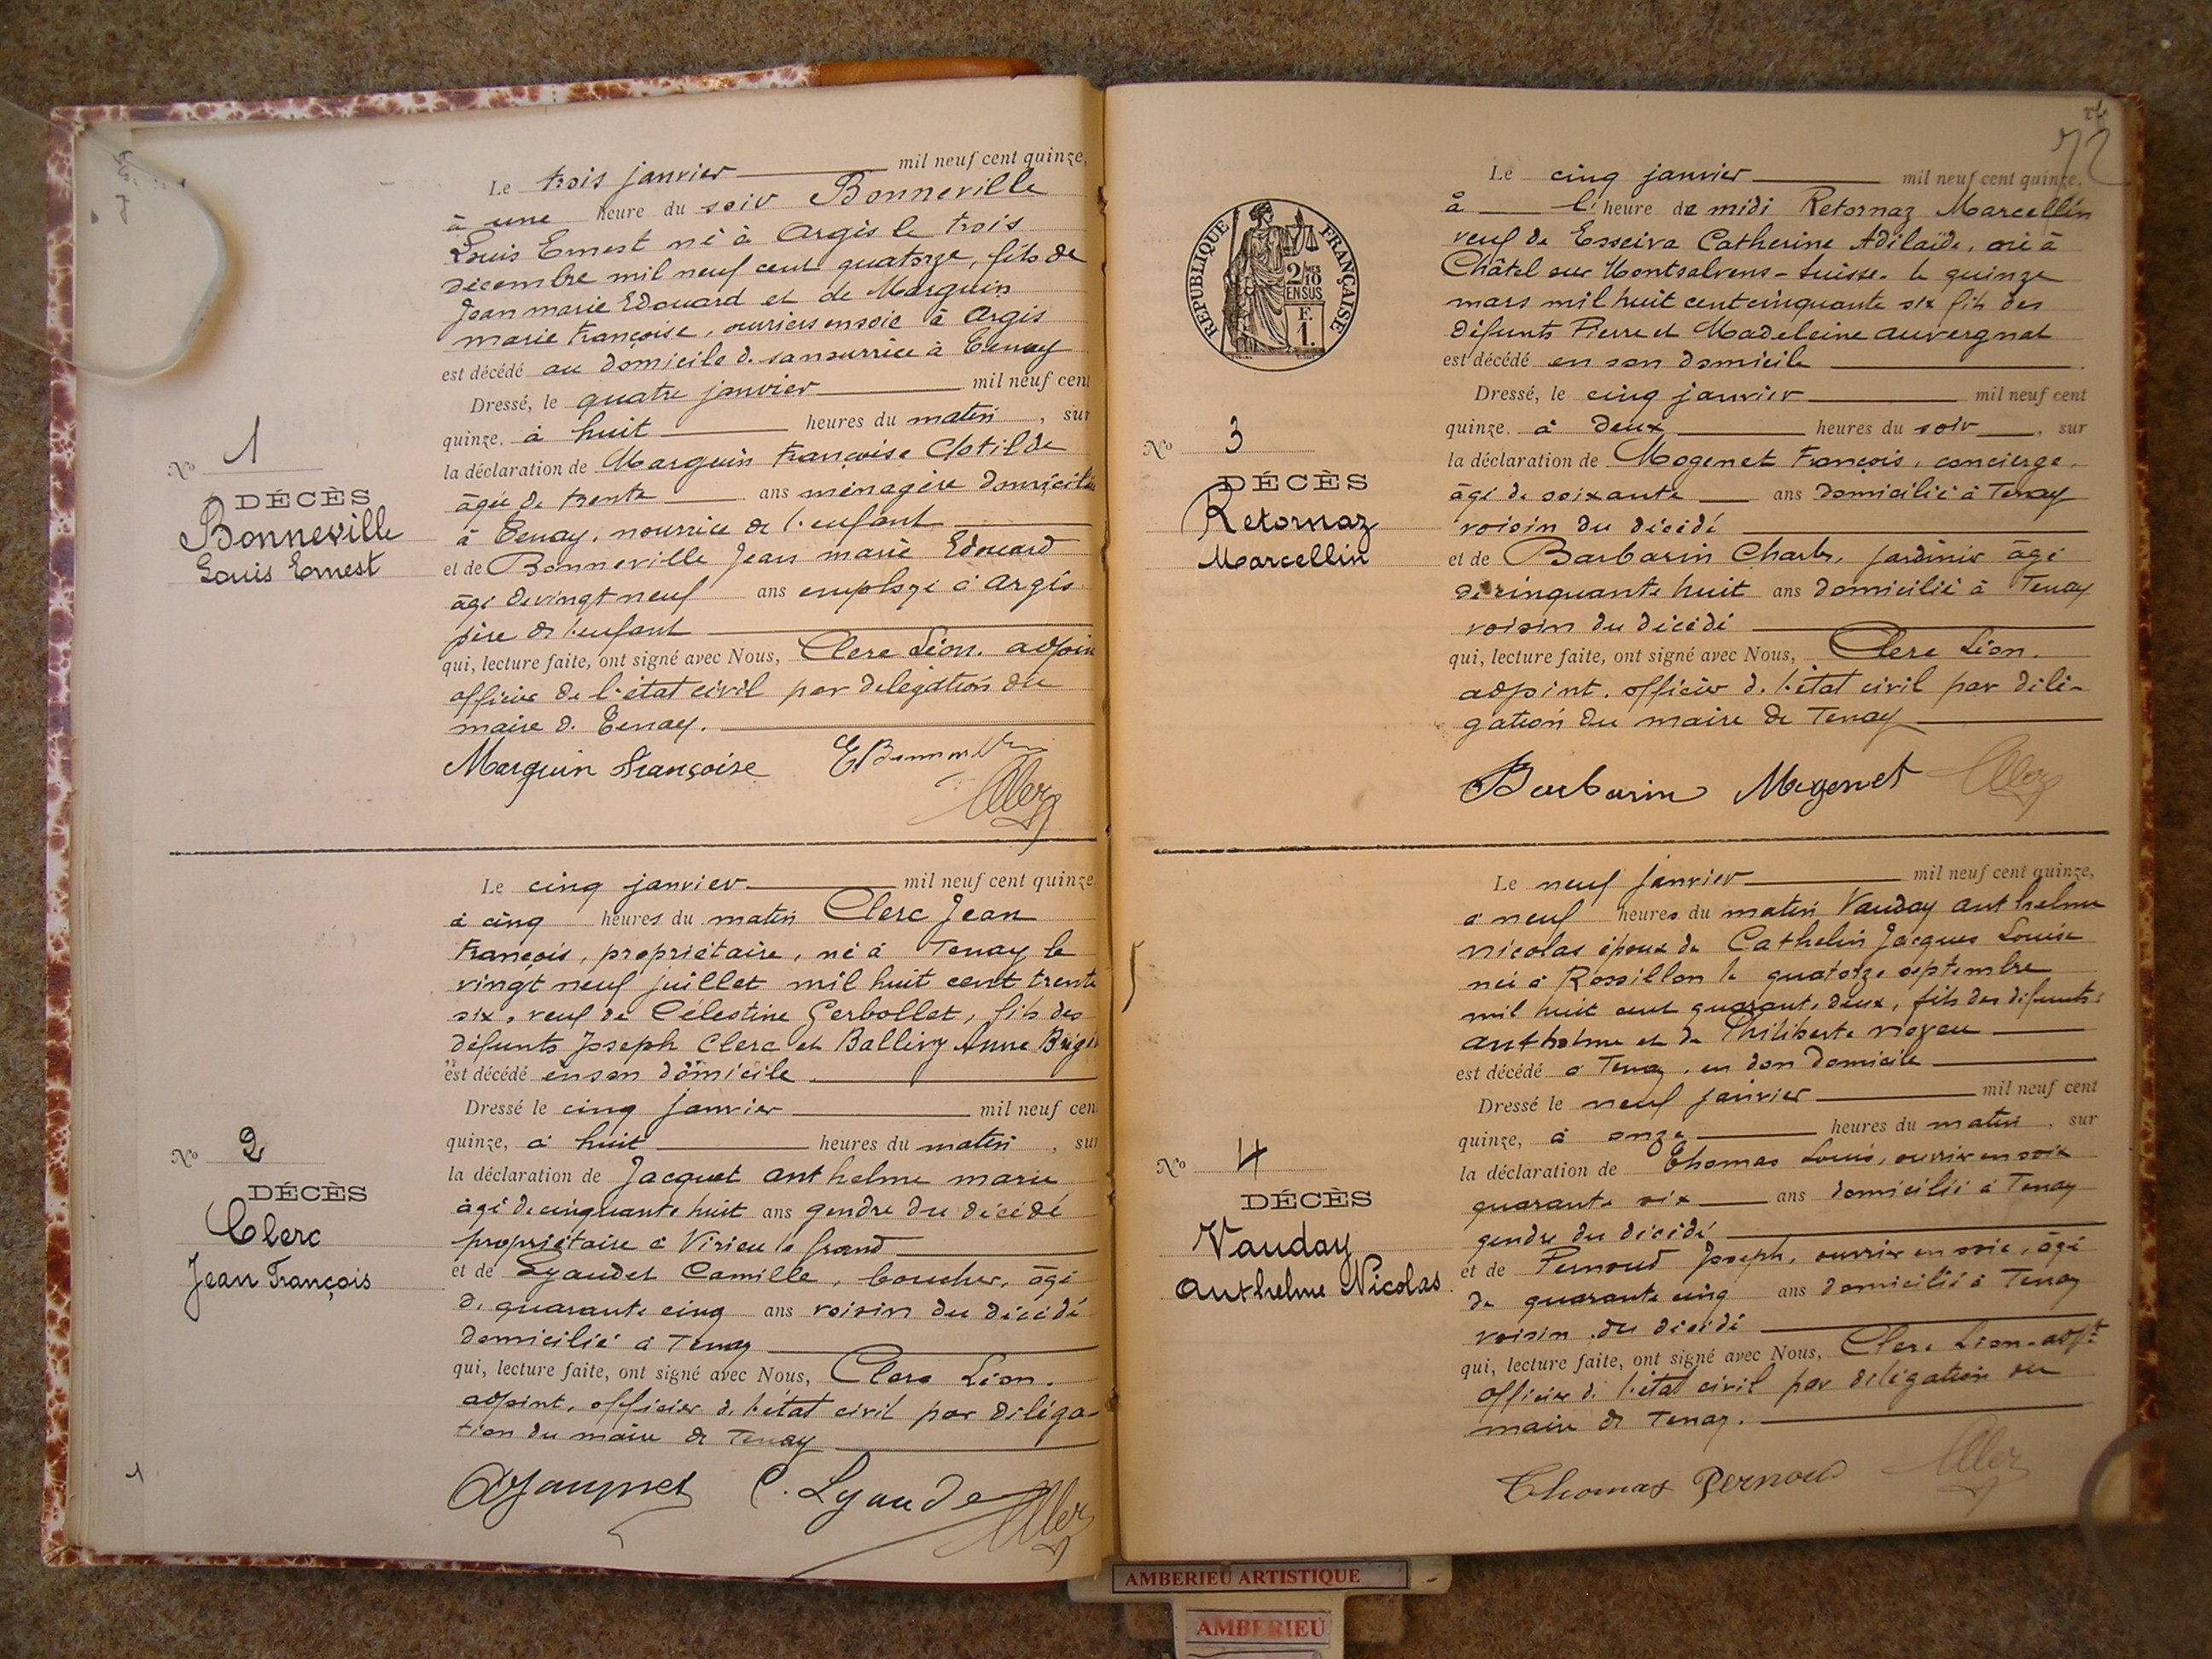 Le trois janvier mil neuf cent quinze,
à une heure du soir Bonneville
Louis Ernest né à Argis le trois
décembre mil neuf cent quatorze, fils de
Jean marie Edouard et de Marguin
marie Françoise, ouvriers en soie à Argis
est décédé au domicile de sa nourrice à Tenay
Dressé, le quatre janvier mil neuf cent
quinze, à huit heures du matin, sur
la déclaration de Marguin Françoise Clotilde
âgée de trente ans ménagère domiciliée
à Tenay, nourrice de l'enfant
et de Bonneville Jean marie Edouard
âgé de vingt neuf ans employé à Argis
père de l'enfant
qui, lecture faite, ont signé avec Nous, Clerc Léon, adjoint
officier de l'état civil par délégation du
maire de Tenay.
Marguin Françoise
No 1
DÉCÈS
Bonneville
Louis Ernest
Le cinq janvier mil neuf cent quinze
à cinq heures du matin Clerc Jean
François, propriétaire, né à Tenay le
vingt neuf juillet mil huit cent trente
six, veuf de Célestine Gerbollet, fils des
défunts Joseph Clerc et Ballivy Anne
est décédé en son domicile
Dressé le cinq janvier mil neuf cent
quinze, à huit heures du matin, sur
la déclaration de Jacquet anthelme marie
âgé de cinquante huit ans gendre du décédé
propriétaire à Virieu le Grand
et de Lyaudet Camille, boucher, âgé
de quarante cinq ans voisin du décédé
domicilié à Tenay
qui, lecture faite, ont signé avec Nous, Clerc Léon.
adjoint, officier de l'état civil par déléga-
tion du maire de Tenay
C. Lyaudet
No 2
DÉCÈS
Clerc
Jean François
1
72
Le cinq janvier mil neuf cent quinze,
à l'heure de midi Retornaz Marcellin
veuf de Esseiva Catherine Adélaïde, né à
Châtel sur Montsalvens - Suisse - le quinze
mars mil huit cent cinquante six fils des
défunts Pierre et Madeleine auvergnat
est décédé en son domicile
Dressé, le cinq janvier mil neuf cent
quinze, à deux heures du soir, sur
la déclaration de Mogenet François, concierge,
âgé de soixante ans domicilié à Tenay
voisin du décédé
et de Barbarin Charles, jardinier âgé
de cinquante huit ans domicilié à Tenay
voisin du décédé
qui, lecture faite, ont signé avec Nous, Clerc Léon.
adjoint, officier de l'état civil par délé-
gation du maire de Tenay
Barbarin Mogenet
RÉPUBLIQUE FRANÇAISE
2/10 MES
EN SUS
F.
1.
No 3
DÉCÈS
Retornaz
Marcellin
Le neuf janvier mil neuf cent quinze,
à neuf heures du matin Vauday anthelme
nicolas époux de Cathelin Jacques Louise
né à Rossillon le quatorze septembre
mil huit cent quarante deux, fils des défunts
anthelme et de Philiberte
est décédé à Tenay, en son domicile
Dressé le neuf janvier mil neuf cent
quinze, à onze heures du matin, sur
la déclaration de Thomas Louis, ouvrier en soie
quarante six ans domicilié à Tenay
gendre du décédé
et de Pernoud Joseph, ouvrier en soie, âgé
de quarante cinq ans domicilié à Tenay
voisin du décédé
qui, lecture faite, ont signé avec Nous, Clerc Léon, adjt
officier de l'état civil par délégation du
maire de Tenay.
Thomas Pernoud
No 4
DÉCÈS
Vauday
Anthelme Nicolas
AMBERIEU ARTISTIQUE
AMBERIEU